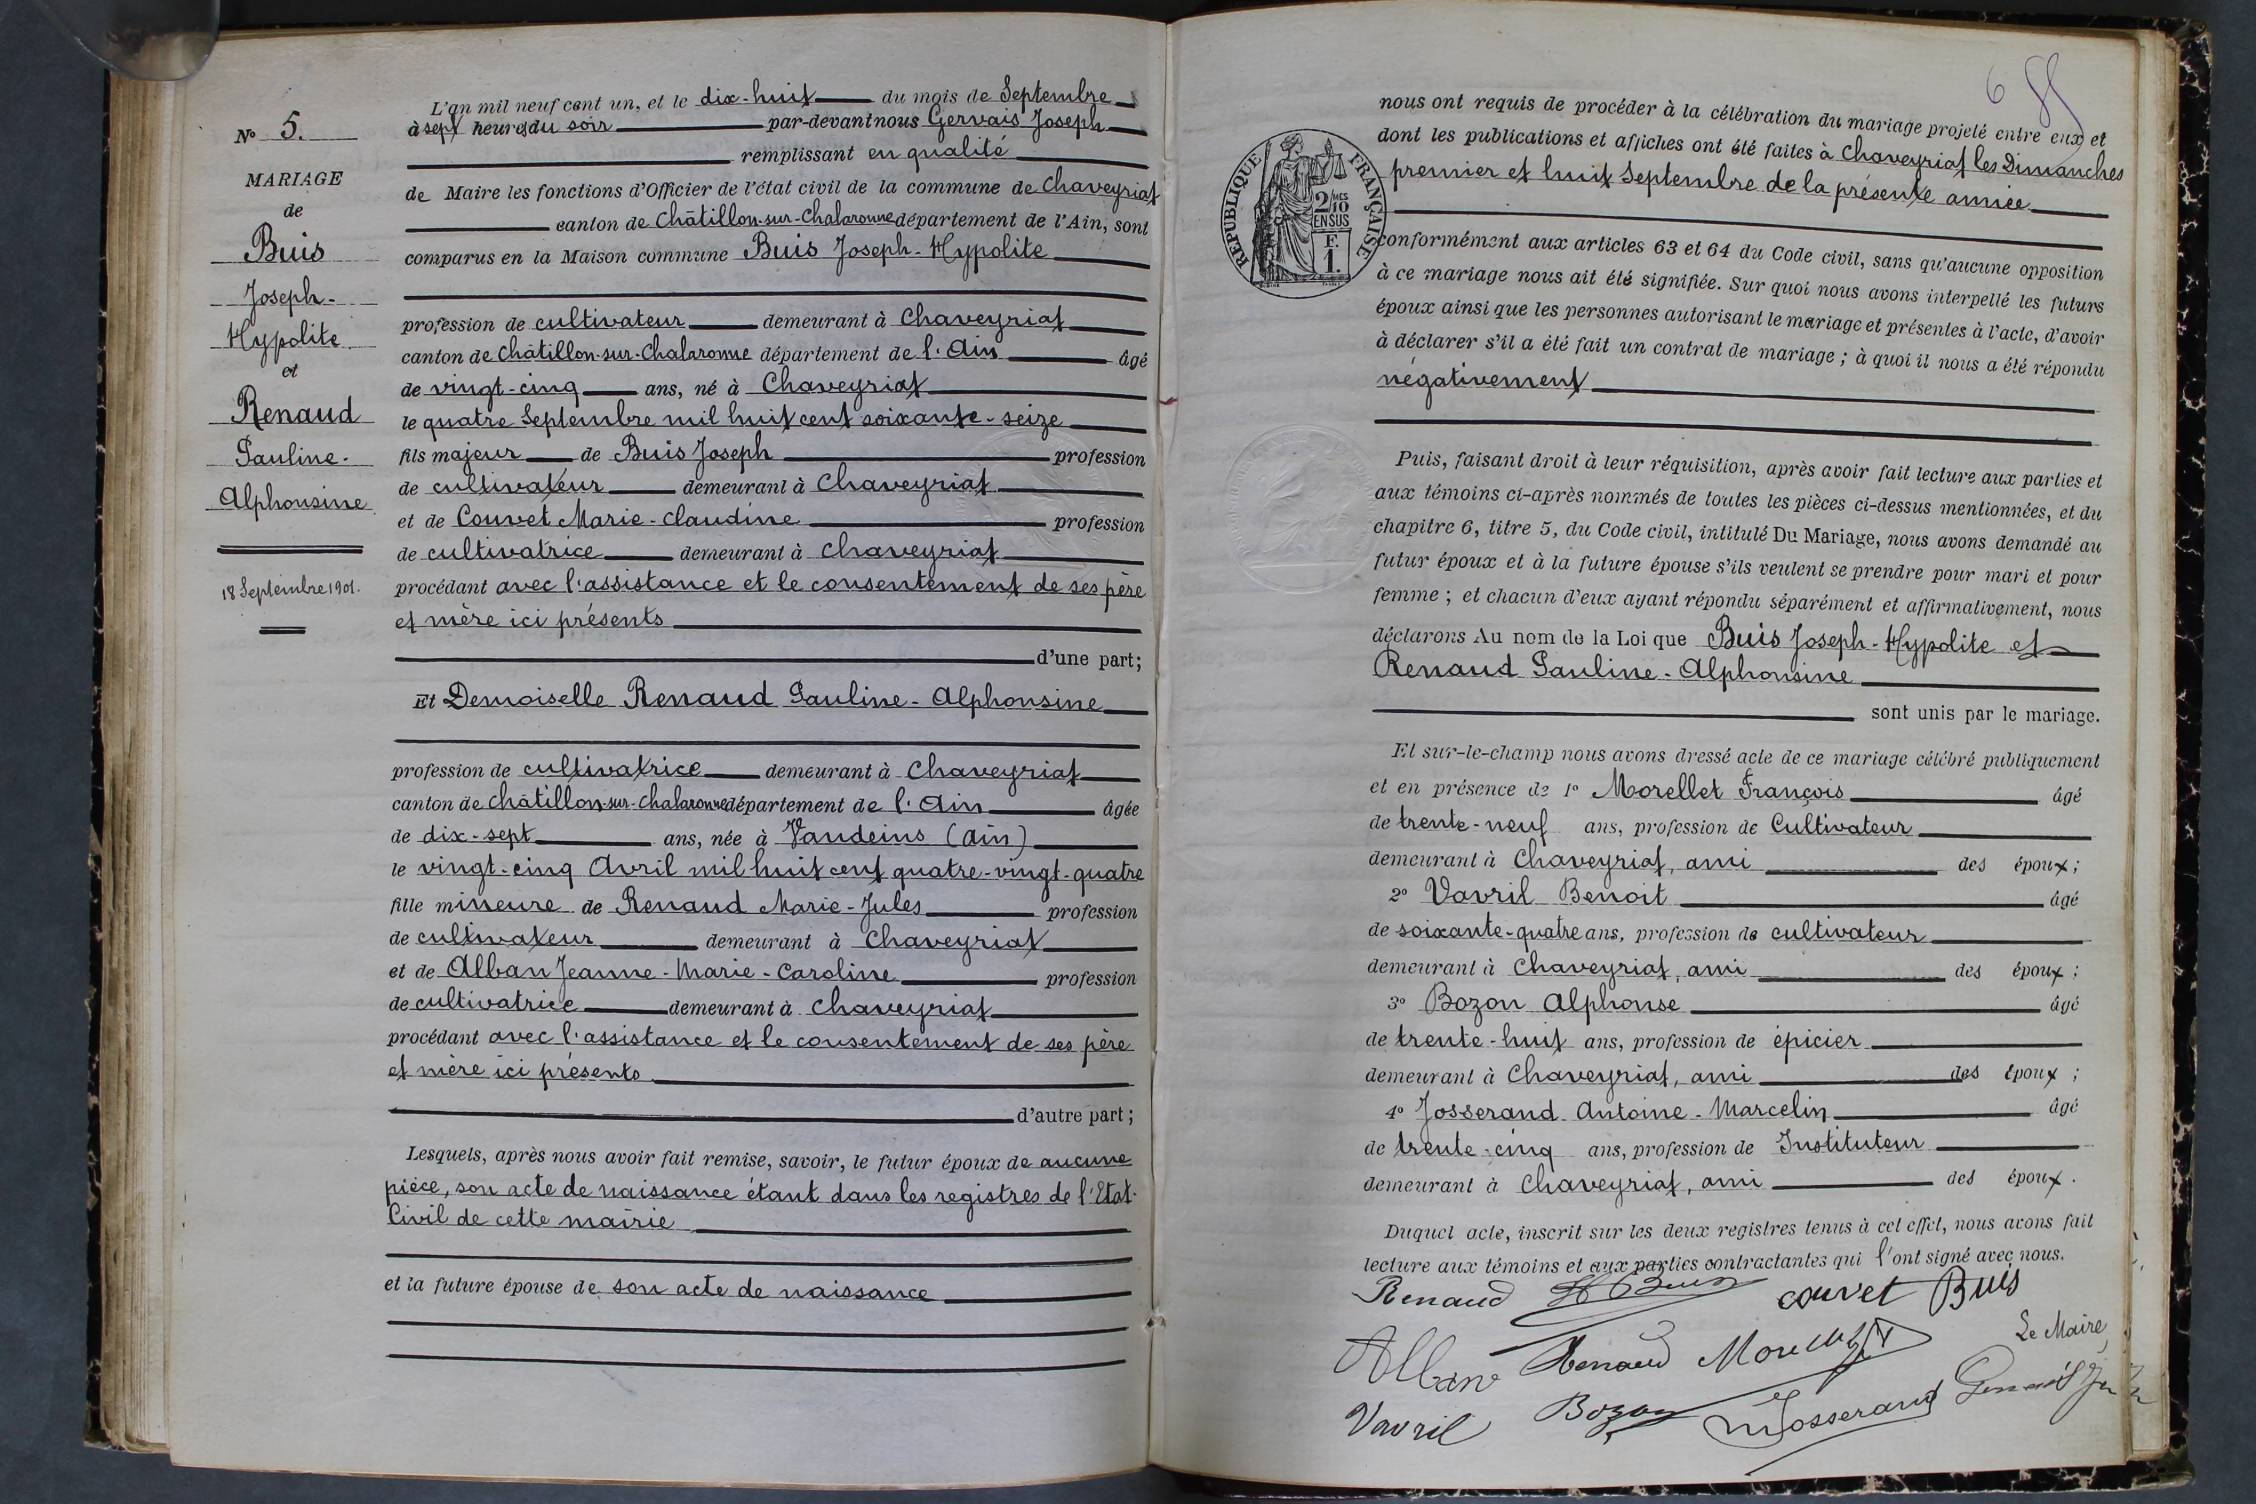 N° 5.
MARIAGE
de
Buis
Joseph-
Hypolite
et
Renaud
Pauline-
Alphonsine
18 Septembre 1901.
L'an mil neuf cent un, et le dix-huit du mois de Septembre
à sept heures du soir par-devant nous Gervais Joseph
remplissant en qualité
de Maire les fonctions d'Officier de l'état civil de la commune de Chaveyriat
canton de Châtillon-sur-Chalaronne département de l'Ain, sont
comparus en la Maison commune Buis Joseph-Hypolite
profession de cultivateur demeurant à Chaveyriat
canton de Châtillon-sur-Chalaronne département de l'Ain âgé
de vingt-cinq ans, né à Chaveyriat
le quatre Septembre mil huit cent soixante-seize
fils majeur de Buis Joseph profession
de cultivateur demeurant à Chaveyriat
et de Couvet Marie-Claudine profession
de cultivatrice demeurant à Chaveyriat
procédant avec l'assistance et le consentement de ses père
et mère ici présents
d'une part;
Et Demoiselle Renaud Pauline-Alphonsine
profession de cultivatrice demeurant à Chaveyriat
canton de Châtillon-sur-Chalaronne département de l'Ain âgée
de dix-sept ans, née à Vandeins (Ain)
le vingt-cinq Avril mil huit cent quatre-vingt-quatre
fille mineure de Renaud Marie-Jules profession
de cultivateur demeurant à Chaveyriat
et de Alban Jeanne-Marie-Caroline profession
de cultivatrice demeurant à Chaveyriat
procédant avec l'assistance et le consentement de ses père
et mère ici présents
d'autre part;
Lesquels, après nous avoir fait remise, savoir, le futur époux de aucune
pièce, son acte de naissance étant dans les registres de l'Etat-
Civil de cette mairie
et la future épouse de son acte de naissance
6
RÉPUBLIQUE FRANÇAISE
2/10 MES
EN SUS
F.
1.
nous ont requis de procéder à la célébration du mariage projeté entre eux et
dont les publications et affiches ont été faites à Chaveyriat les Dimanches
premier et huit Septembre de la présente année
conformément aux articles 63 et 64 du Code civil, sans qu'aucune opposition
à ce mariage nous ait été signifiée. Sur quoi nous avons interpellé les futurs
époux ainsi que les personnes autorisant le mariage et présentes à l'acte, d'avoir
à déclarer s'il a été fait un contrat de mariage; à quoi il nous a été répondu
négativement
Puis, faisant droit à leur réquisition, après avoir fait lecture aux parties et
aux témoins ci-après nommés de toutes les pièces ci-dessus mentionnées, et du
chapitre 6, titre 5, du Code civil, intitulé Du Mariage, nous avons demandé au
futur époux et à la future épouse s'ils veulent se prendre pour mari et pour
femme; et chacun d'eux ayant répondu séparément et affirmativement, nous
déclarons Au nom de la Loi que Buis Joseph-Hypolite et
Renaud Pauline-Alphonsine
sont unis par le mariage.
Et sur-le-champ nous avons dressé acte de ce mariage célébré publiquement
et en présence de 1° Morellet François âgé
de trente-neuf ans, profession de Cultivateur
demeurant à Chaveyriat, ami des époux;
2° Vavril Benoit âgé
de soixante-quatre ans, profession de cultivateur
demeurant à Chaveyriat, ami des époux;
3° Bozon Alphonse âgé
de trente-huit ans, profession de épicier
demeurant à Chaveyriat, ami des époux;
4° Josserand Antoine-Marcelin âgé
de trente-cinq ans, profession de Instituteur
demeurant à Chaveyriat, ami des époux.
Duquel acte, inscrit sur les deux registres tenus à cet effet, nous avons fait
lecture aux témoins et aux parties contractantes qui l'ont signé avec nous.
Renaud H Buis couvet Buis
Le Maire,
Alban Renaud Morellet
Vavril Bozon Josserand Gervais Jh